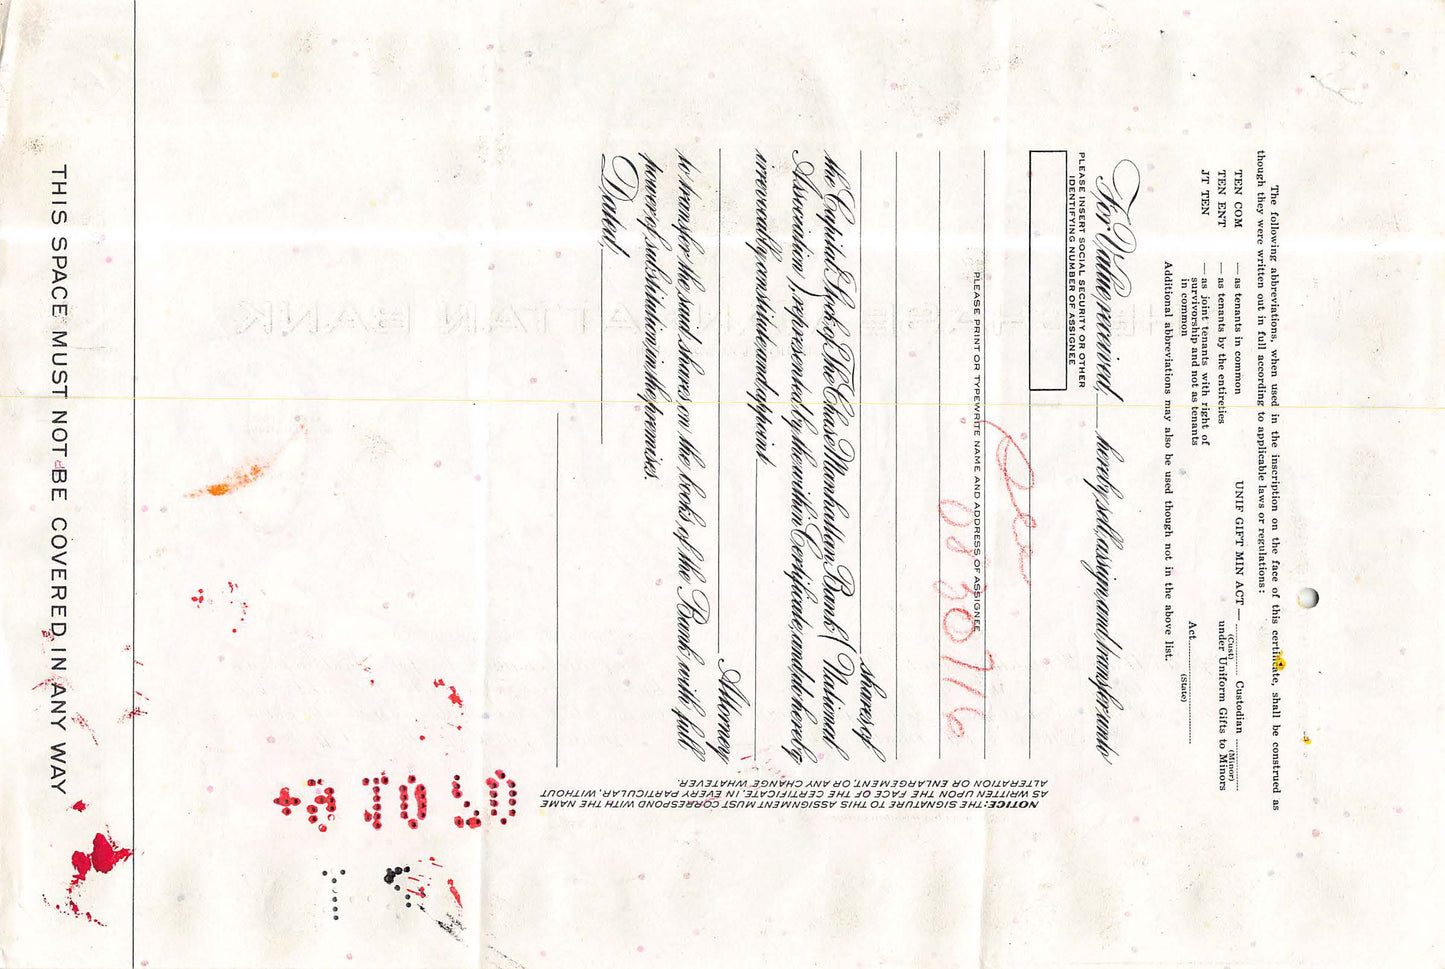 The following abbreviations, when used in the inscription on the face of this certificate, shall be construed as
though they were written out in full according to applicable laws or regulations:
TEN COM — as tenants in common
TEN ENT — as tenants by the entireties
JT TEN — as joint tenants with right of
survivorship and not as tenants
in common
UNIF GIFT MIN ACT— Custodian
(Cust) (Minor)
under Uniform Gifts to Minors
Act
(State)
Additional abbreviations may also be used though not in the above list.
For Value received, hereby sell, assign and transfer unto
PLEASE INSERT SOCIAL SECURITY OR OTHER
IDENTIFYING NUMBER OF ASSIGNEE
PLEASE PRINT OR TYPEWRITE NAME AND ADDRESS OF ASSIGNEE
shares of
the Capital Stock of The Chase Manhattan Bank (National
Association), represented by the within Certificate, and do hereby
irrevocably constitute and appoint
Attorney
to transfer the said shares on the books of the Bank with full
power of substitution in the premises.
Dated,
NOTICE: THE SIGNATURE TO THIS ASSIGNMENT MUST CORRESPOND WITH THE NAME
AS WRITTEN UPON THE FACE OF THE CERTIFICATE, IN EVERY PARTICULAR, WITHOUT
ALTERATION OR ENLARGEMENT, OR ANY CHANGE WHATEVER.
THIS SPACE MUST NOT BE COVERED IN ANY WAY